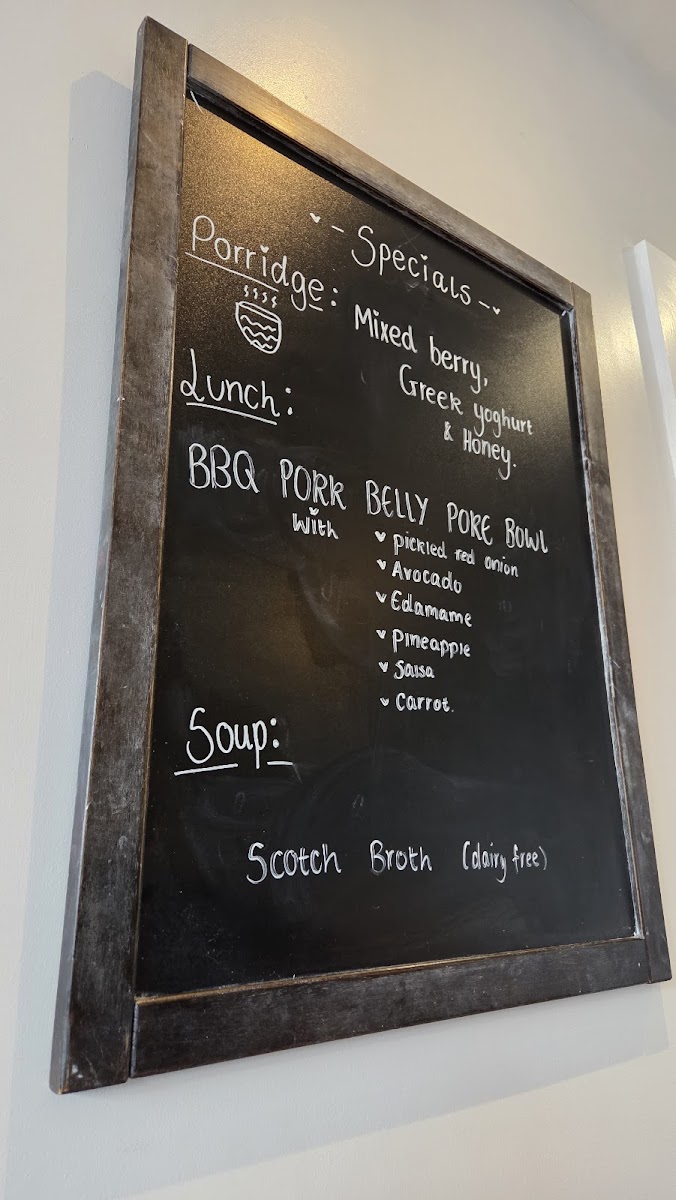 - Specials -
Porridge: Mixed berry,
Greek yoghurt
& Honey.
Lunch:
BBQ PORK BELLY POKE BOWL
With
pickled red onion
Avocado
Edamame
pineapple
Salsa
Carrot.
Soup:
Scotch Broth (dairy free)